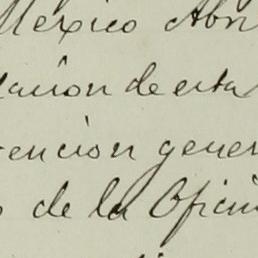 Mexico Abr
ación de esta
ención gener
de la Ofici